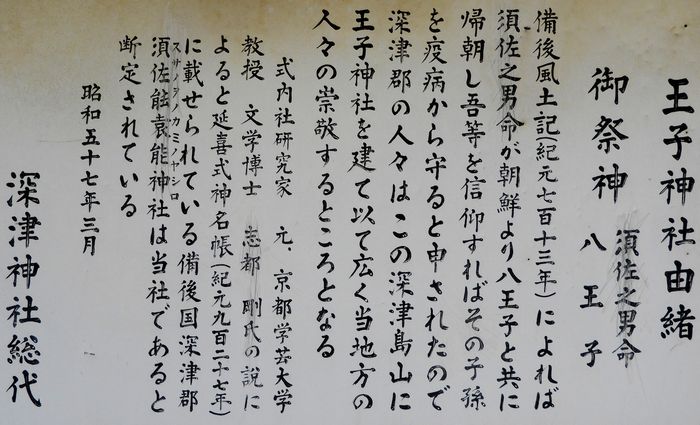 王子神社由緒
御祭神 須佐之男命
八王子
備後風土記(紀元七百十三年)によれば
須佐之男命が朝鮮より八王子と共に
帰朝し吾等を信仰すればその子孫
を疫病から守ると申されたので
深津郡の人々はこの深津島山に
王子神社を建て以て広く当地方の
人々の崇敬するところとなる
式内社研究家 元、京都学芸大学
教授 文学博士 志都 剛氏の説に
よると延喜式神名帳(紀元九百二十七年)
に載せられている備後国深津郡
須佐能袁能神社は当社であると
スサノヲノカミノヤシロ
断定されている
昭和五十七年三月
深津神社総代